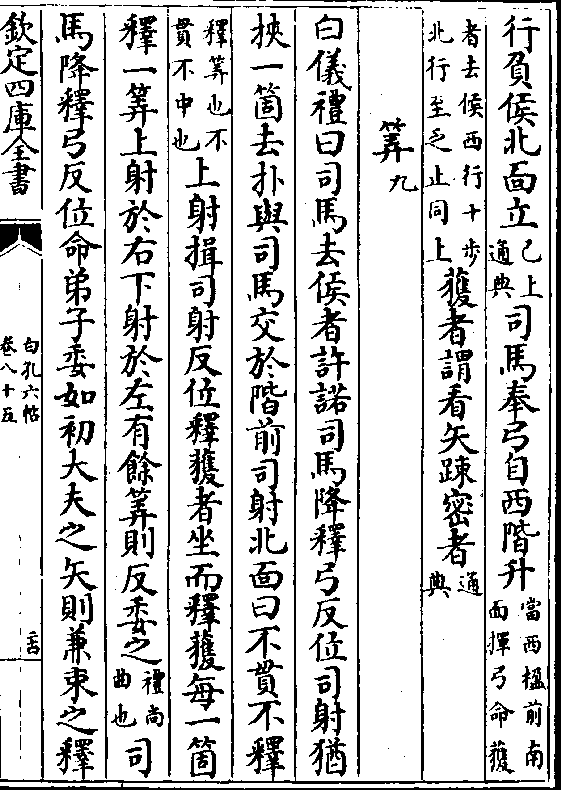 行負侯北面立已上通典司馬奉弓自西階升當西楹前南面揮弓命獲
者去侯西行十步北行至乏止同上獲者謂看矢踈密者通典
筭九
白儀禮曰司馬去侯者許諾司馬降釋弓反位司射猶
挾一箇去扑與司馬交於階前司射北面曰不貫不釋
釋筭也不貫不中也上射揖司射反位釋獲者坐而釋獲每一箇
釋一筭上射於右下射於左有餘筭則反委之禮尚曲也司
馬降釋弓反位命弟子委如初大夫之矢則兼束之釋
欽定四庫全書
白孔六帖
卷八十五